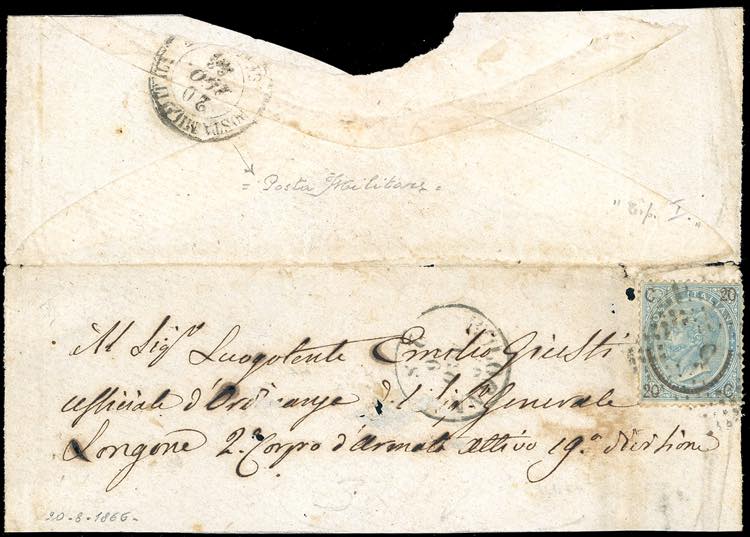 POSTA MILIT
20
AGO
66
= Posta Militare =
" Tip. I. "
C 20
20 C
Al Sigr Luogotente Emilio Giusti
officiale d'Ordinanze d. Generale
Longone 2º Corpo d'Armata attivo 19ª divisione
20-8-1866-